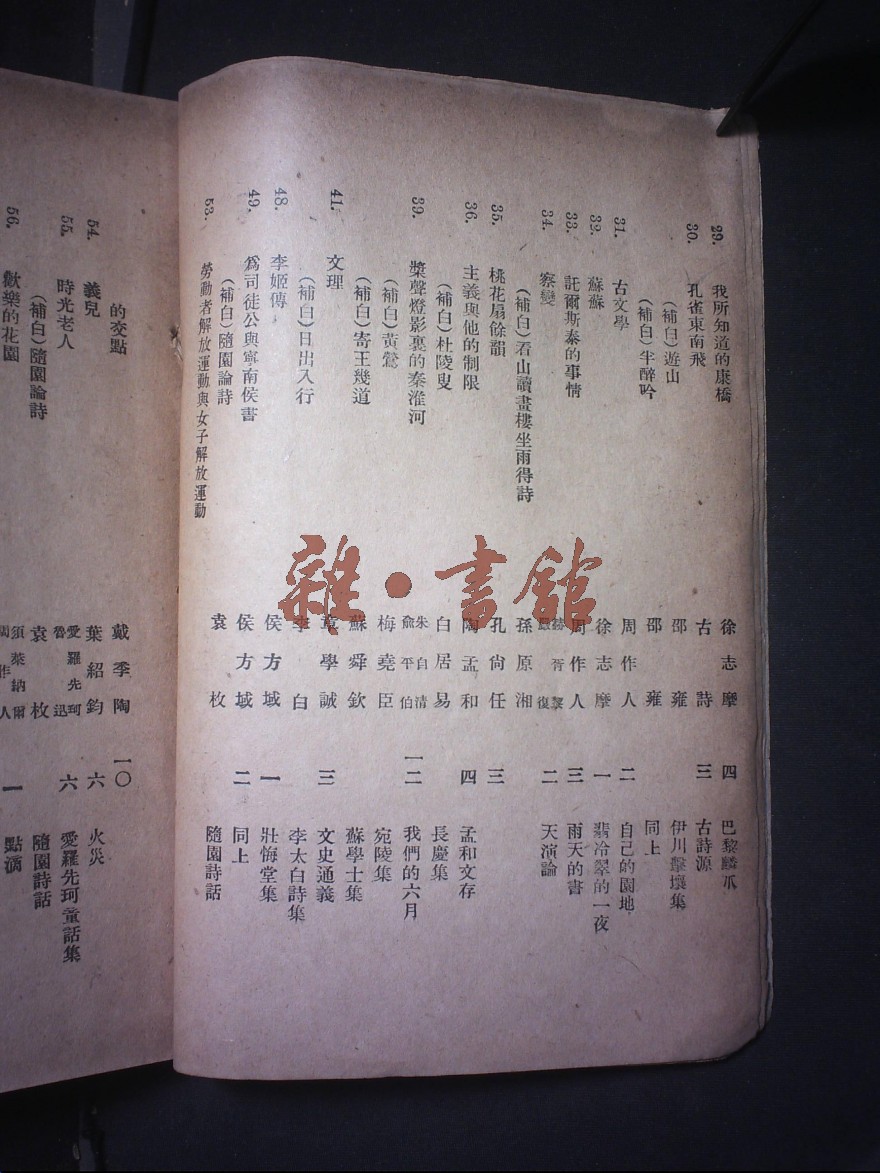 29. 我所知道的康橋 徐志摩 四 巴黎麟爪
30. 孔雀東南飛 古詩 三 古詩源
（補白）遊山 邵雍 伊川擊壤集
（補白）半醉吟 邵雍 同上
31. 古文學 周作人 二 自己的園地
32. 蘇蘇 徐志摩 一 翡冷翠的一夜
33. 託爾斯泰的事情 周作人 三 雨天的書
34. 察變 赫胥黎 嚴復 二 天演論
（補白）看山讀畫樓坐雨得詩 孫原湘
35. 桃花扇餘韻 孔尚任 三
36. 主義與他的制限 陶孟和 四 孟和文存
（補白）杜陵叟 白居易 長慶集
39. 槳聲燈影裏的秦淮河 朱自清 俞平伯 一二 我們的六月
（補白）黃鶯 梅堯臣 宛陵集
（補白）寄王幾道 蘇舜欽 蘇學士集
41. 文理 章學誠 三 文史通義
（補白）日出入行 李白 李太白詩集
48. 李姬傳 侯方域 一 壯悔堂集
49. 爲司徒公與寧南侯書 侯方域 二 同上
（補白）隨園論詩 袁枚 隨園詩話
53. 勞動者解放運動與女子解放運動
的交點 戴季陶 一〇
54. 義兒 葉紹鈞 六 火災
55. 時光老人 愛羅先珂 魯迅 六 愛羅先珂童話集
（補白）隨園論詩 袁枚 隨園詩話
56. 歡樂的花園 須萊納爾 周作人 一 點滴
雜·書館